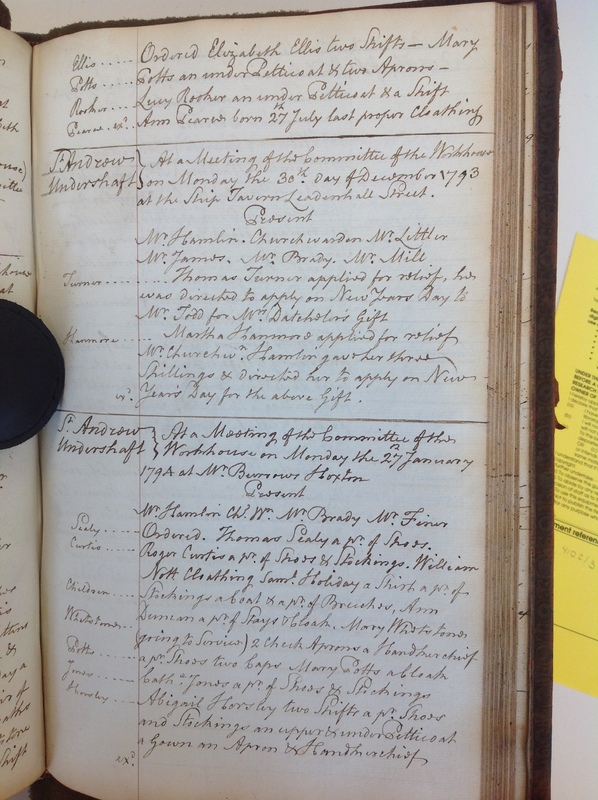 Ellis Ordered Elizabeth Ellis two Shifts – Mary
Potts Potts an under Petticoat & two Aprons –
Rosher Lucy Rosher an under Petticoat & a Shift
Pearce exd. Ann Pearce born 27th July last proper Cloathing
St. Andrew Undershaft } At a Meeting of the Committee of the Workhouse
on Monday the 30th. day of December 1793
at the Ship Tavern Leadenhall Street.
Present
Mr. Hamlin. Churchwarden Mr. Littler
Mr. James. Mr. Brady. Mr. Mill
Turner Thomas Turner applied for relief, he
was directed to apply on New Years Day to
Mr. Todd for Mrs. Datchelor's Gift
Hanmore Martha Hanmore applied for relief
Mr. Churchwn. Hamlin gave her three
Shillings & directed her to apply on New
exd. Year's Day for the above Gift.
St. Andrew Undershaft } At a Meeting of the Committee of the
Workhouse on Monday the 27th January
1794 at Mr. Burrows Hoxton
Present
Mr. Hamlin Ch. Wn. Mr. Brady Mr. Finer
Sealy Ordered. Thomas Sealy a pr. of Shoes.
Curtis Roger Curtis a pr. of Shoes & Stockings. William
Nott Cloathing Saml. Holiday a Shirt a pr. of
Children Stockings a Coat & a pr. of Breeches, Ann
Duncan a pr. of Stays & Cloak. Mary Whetstone
Whetstone (going to Service) 2 Check Aprons a Handkerchief
a pr. Shoes two Caps Mary Potts a Cloak
Potts
Jones Cath: Jones a pr. of Shoes & Stockings
Horsley Abigail Horsley two Shifts a pr. Shoes
and Stockings an upper & under Petticoat
exd. a Gown an Apron & Handkerchief
UNDER
BEFORE A
ment reference